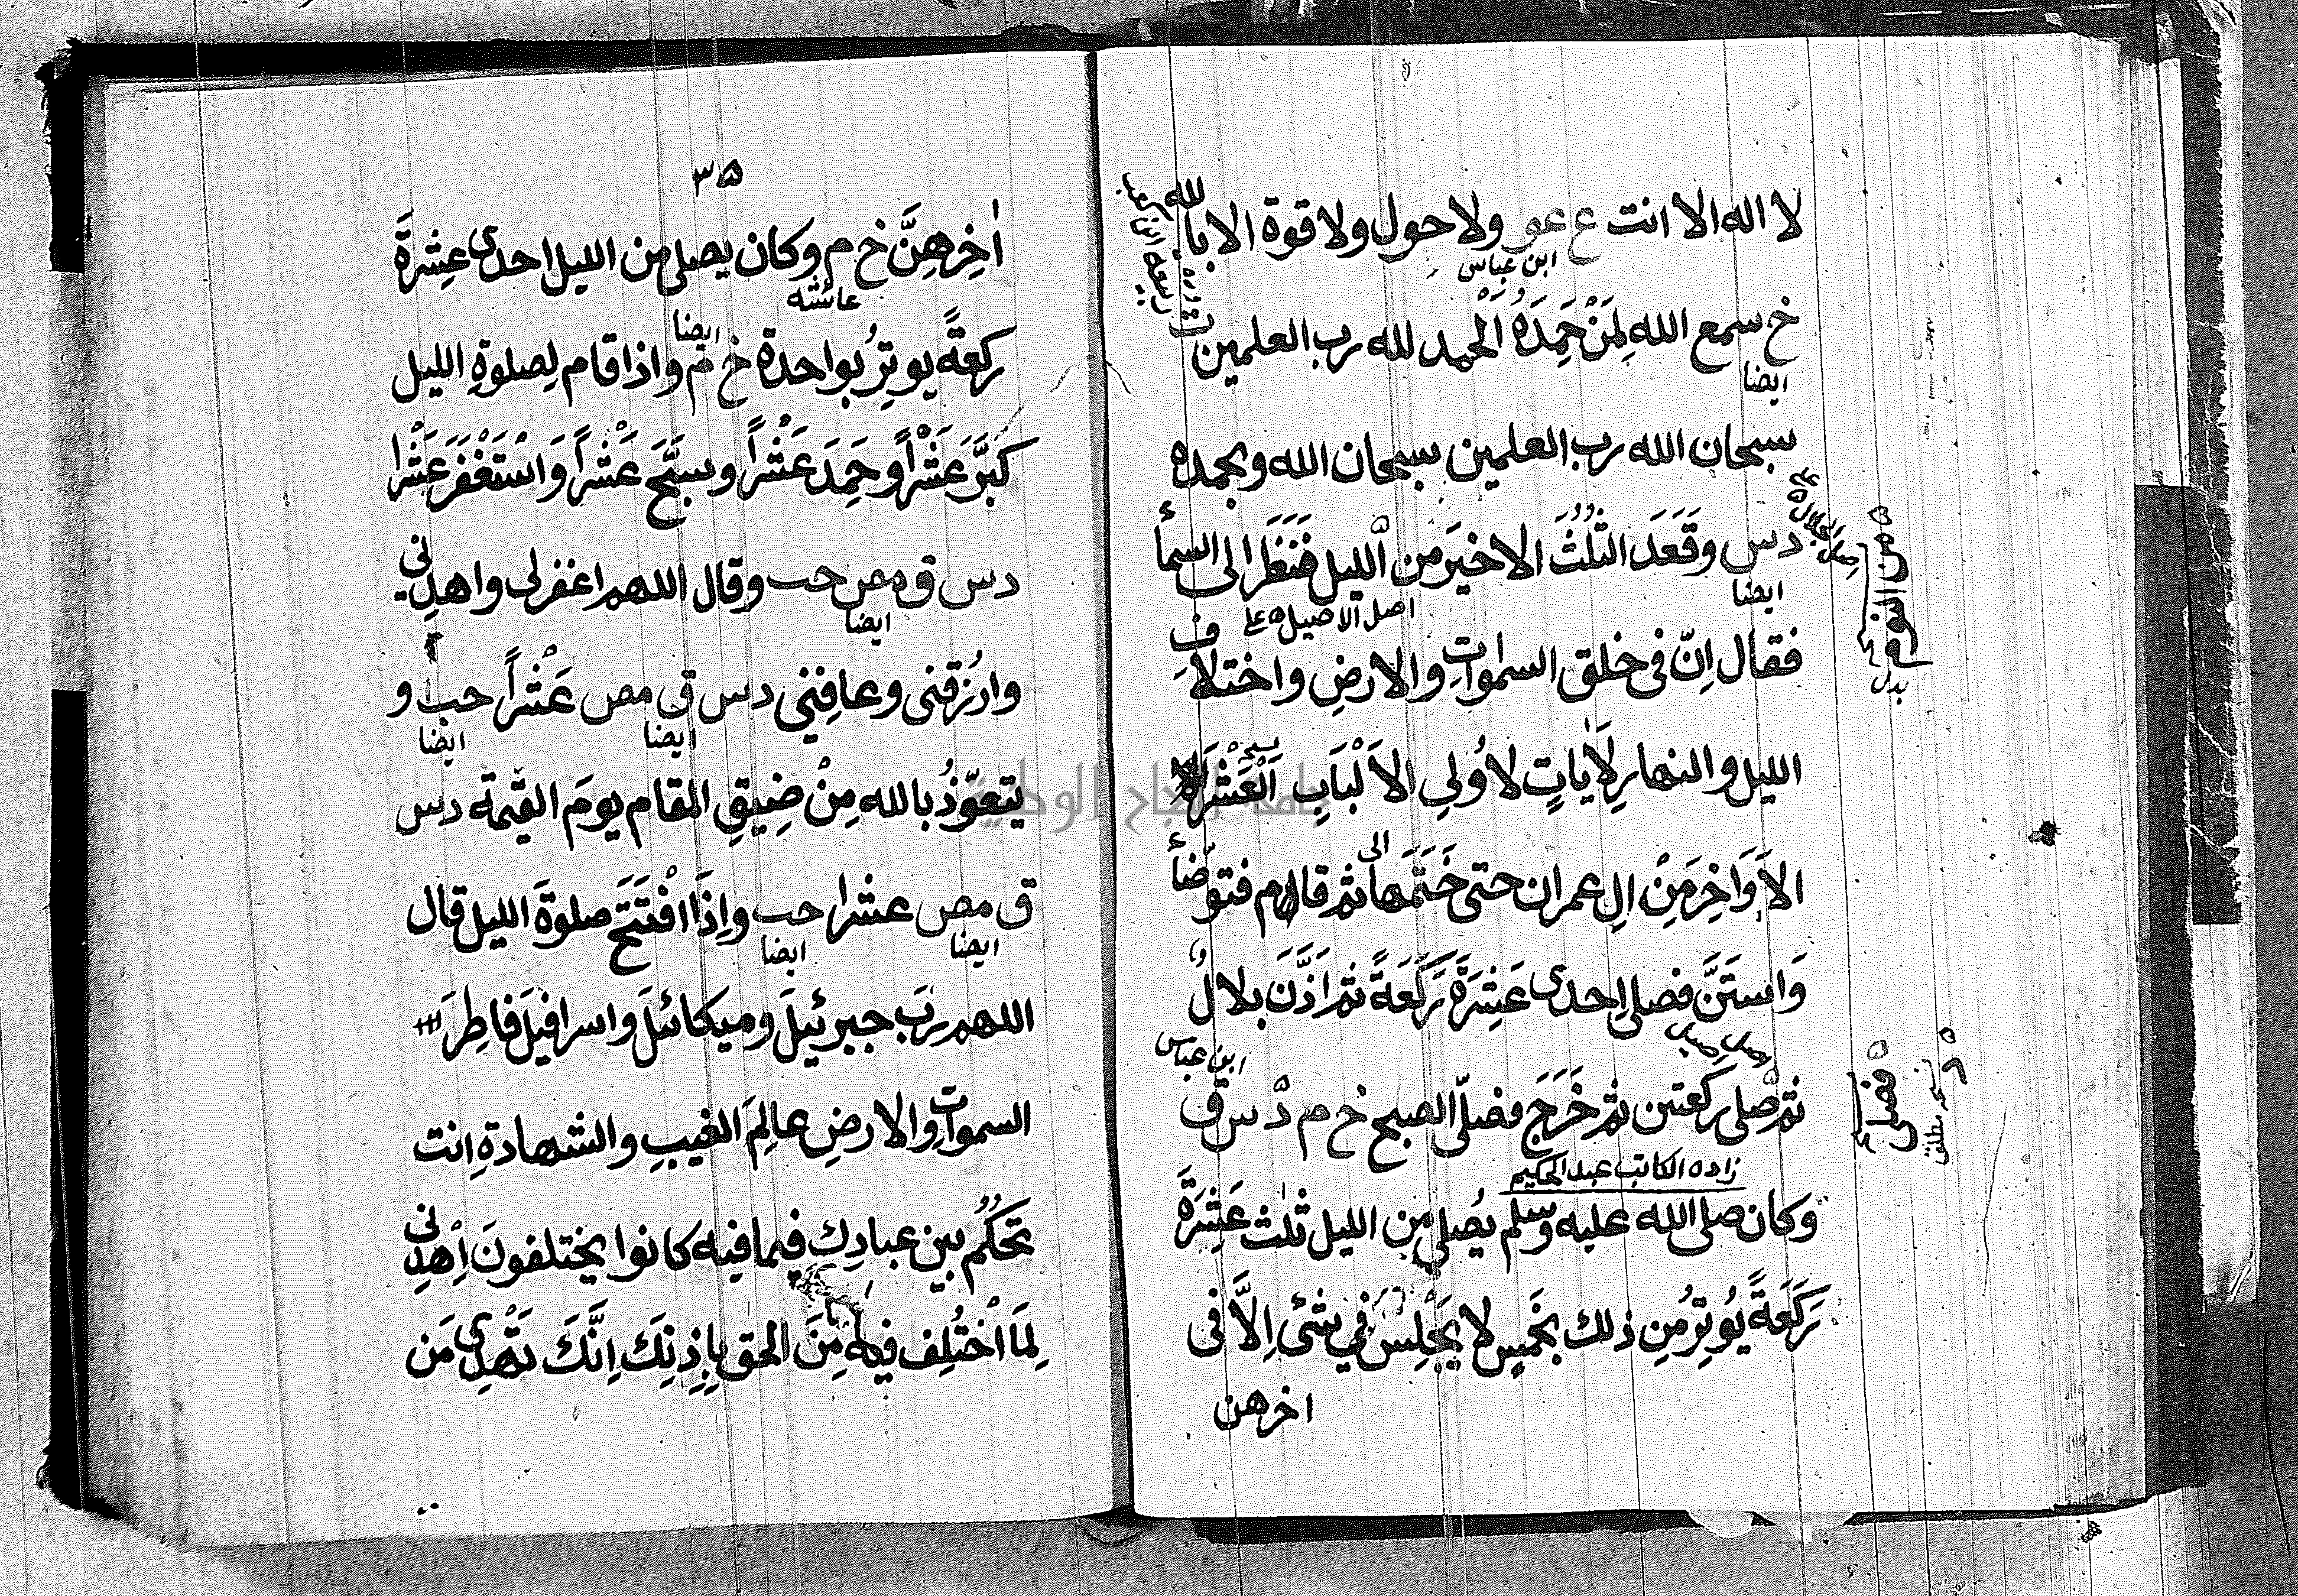 لا اله الا انت ع عو ولا حول ولا قوة الا بالله
ابن عباس
ربيعة ابن كعب
خ سمع الله لِمَنْ حَمِدَهُ الحمد لله رب العلمين ت
ايضا
سبحان الله رب العلمين سبحان الله وبحمده
دس وقَعَدَ الثلُثَ الاخيرَ من الليل فنَظَرَ الى السمأ
ايضا
اصل الاصيل
من النوم
بدل
فقال اِنّ فى خلق السموات والارضِ واختلاف
الليل والنهارِ لَاٰياتٍ لاُولي الاَلْبَابِ اَلْعَشْرَةَ
الاَوَاخِرَ مِنْ اٰلِ عمران حتى خَتَمَها ثم قام فتوضأ
الى
وَاستَنَّ فصلى اِحدى عَشِرَةَ رَكْعَةً ثم اَذَّنَ بلالٌ
ابن عباس
ثم صلى ركعتين ثم خَرَجَ فصلّى الصبح خ م د س ق
فصلى
نسخه مطلق
زاده الكاتب عبد الحكيم
وكان صلى الله عليه وسلم يُصلي من الليل ثلث عَشِرَةَ
رَكَعَةً يُوتِرُ مِن ذلك بخَمسٍ لا يَجْلِسُ في شئى اِلَّا فى
اخرهن
٣٥
اٰخِرِهِنَّ خ م وكان يصلى من الليل احدى عِشرةَ
عائشه
ركعةً يوتِرُ بواحدة خ م واذا قام لِصلوةِ الليل
ايضا
كَبَّرَ عَشْراً وحَمِدَ عَشْراً وسبَّحَ عَشْراً وَاسْتَغْفَرَ عَشْرا
دس ق مص حب وقال اللهم اغفرلى واهدِنى
ايضا
وارْزُقنى وعافِنى دس ق مص عَشْراً حب و
ايضا ايضا
يتعوّذُ بالله مِنْ ضِيقِ المقام يومَ القيمة دس
ق مص عشرا حب واِذَا افْتَتَحَ صلوةَ الليل قال
ايضا ايضا
اللهم ربَّ جبرئيلَ وميكائلَ واسرافيلَ فاطِرَ
السموات والارضِ عالِمَ الغيبِ والشهادةِ انت
تَحكُمُ بين عبادِك فيما فيه كانوا يختلفونَ اِهْدِنى
لِمَا اخْتُلِف فيه مِنَ الحق بِاِذنِكَ اِنَّكَ تَهْدِى مَن